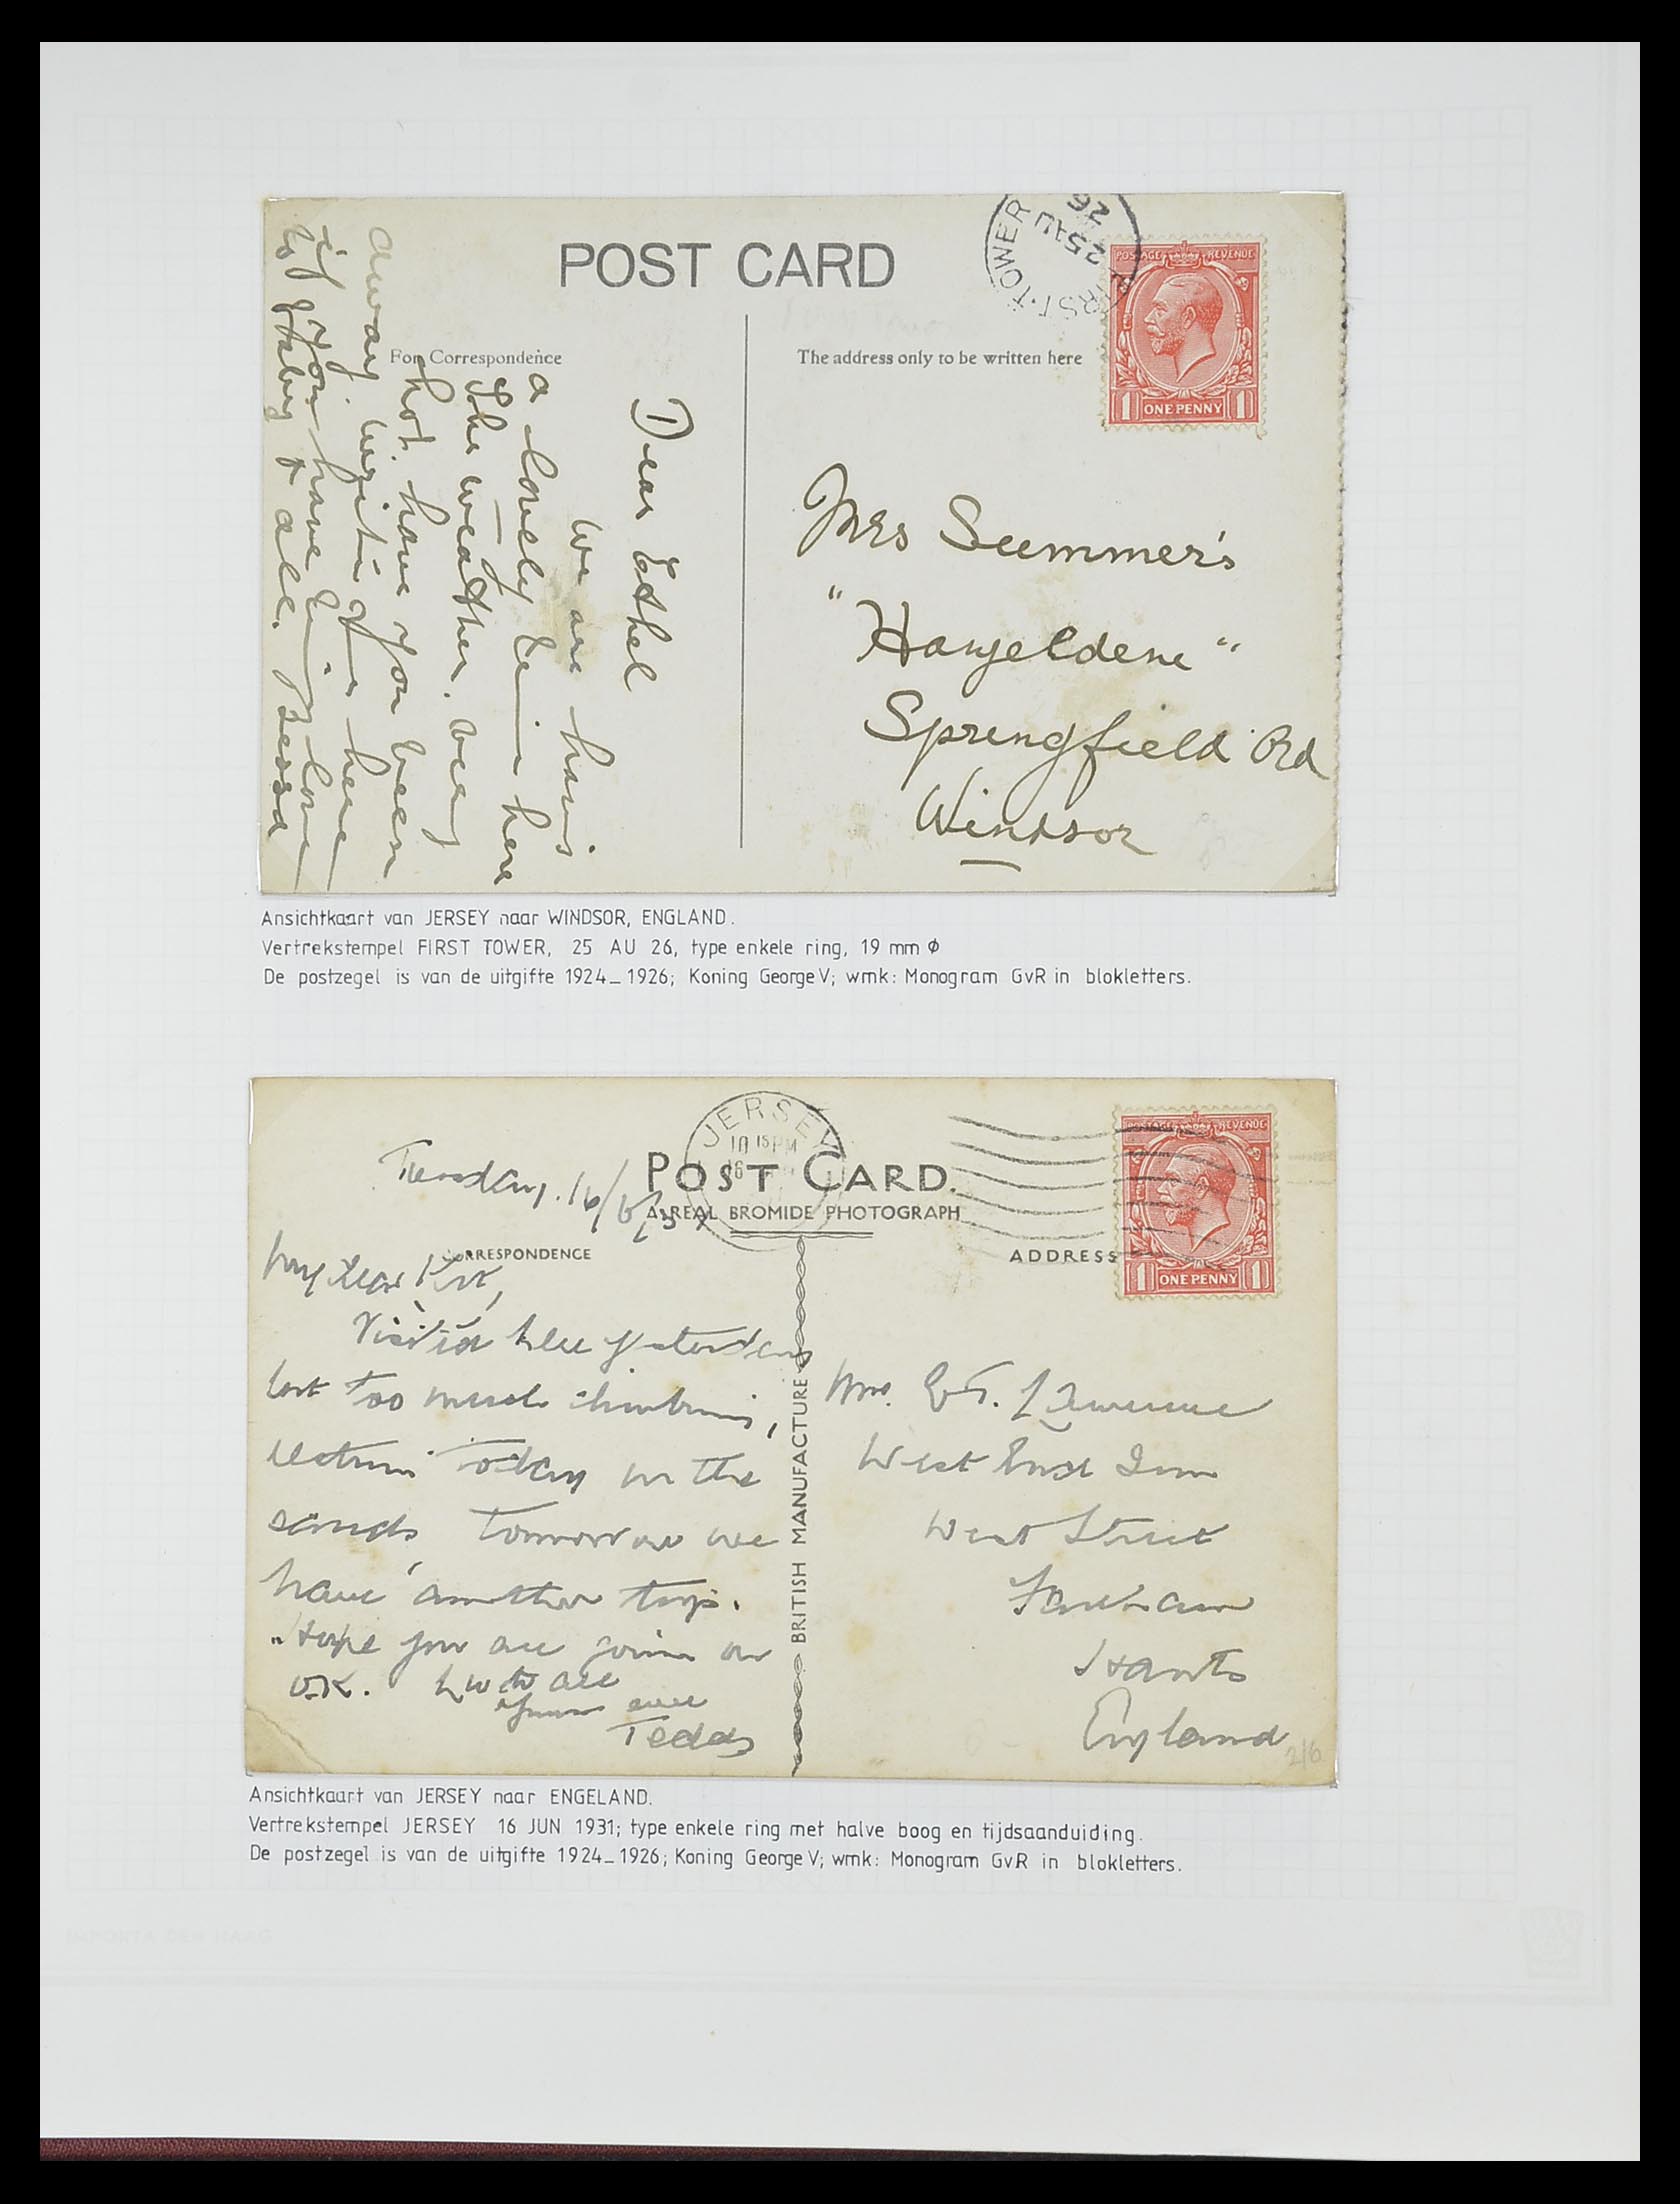 POST CARD
FIRST·TOWER
25 AU
26
POSTAGE REVENUE
1 ONE PENNY 1
For Correspondence
The address only to be written here
Dear Ethel
We are having
a lovely time here
the weather. very
hot. have you been
away write if here
if you have time love
to baby & all.
Mrs Summer's
"
Springfield Rd
Windsor
Ansichtkaart van JERSEY naar WINDSOR, ENGLAND.
Vertrekstempel FIRST TOWER, 25 AU 26, type enkele ring, 19 mm ø
De postzegel is van de uitgifte 1924_1926; Koning George V; wmk: Monogram GvR in blokletters.
JERSEY
10 15 PM
16
POST CARD.
A REAL BROMIDE PHOTOGRAPH
POSTAGE REVENUE
1 ONE PENNY 1
CORRESPONDENCE
ADDRESS
BRITISH MANUFACTURE
Tuesday. 16/6/31
My dear
Visited here yesterday
but too much climbing,
resting today on the
sands, tomorrow we
have another trip.
Hope you are going on
O.K. to all
Yours ever
Teddy
Mrs. Lawrence
West End Inn
West Street
Fareham
Hants
England
2/6
Ansichtkaart van JERSEY naar ENGELAND.
Vertrekstempel JERSEY 16 JUN 1931; type enkele ring met halve boog en tijdsaanduiding.
De postzegel is van de uitgifte 1924_1926; Koning George V; wmk: Monogram GvR in blokletters.
IMPORTA DEN HAAG